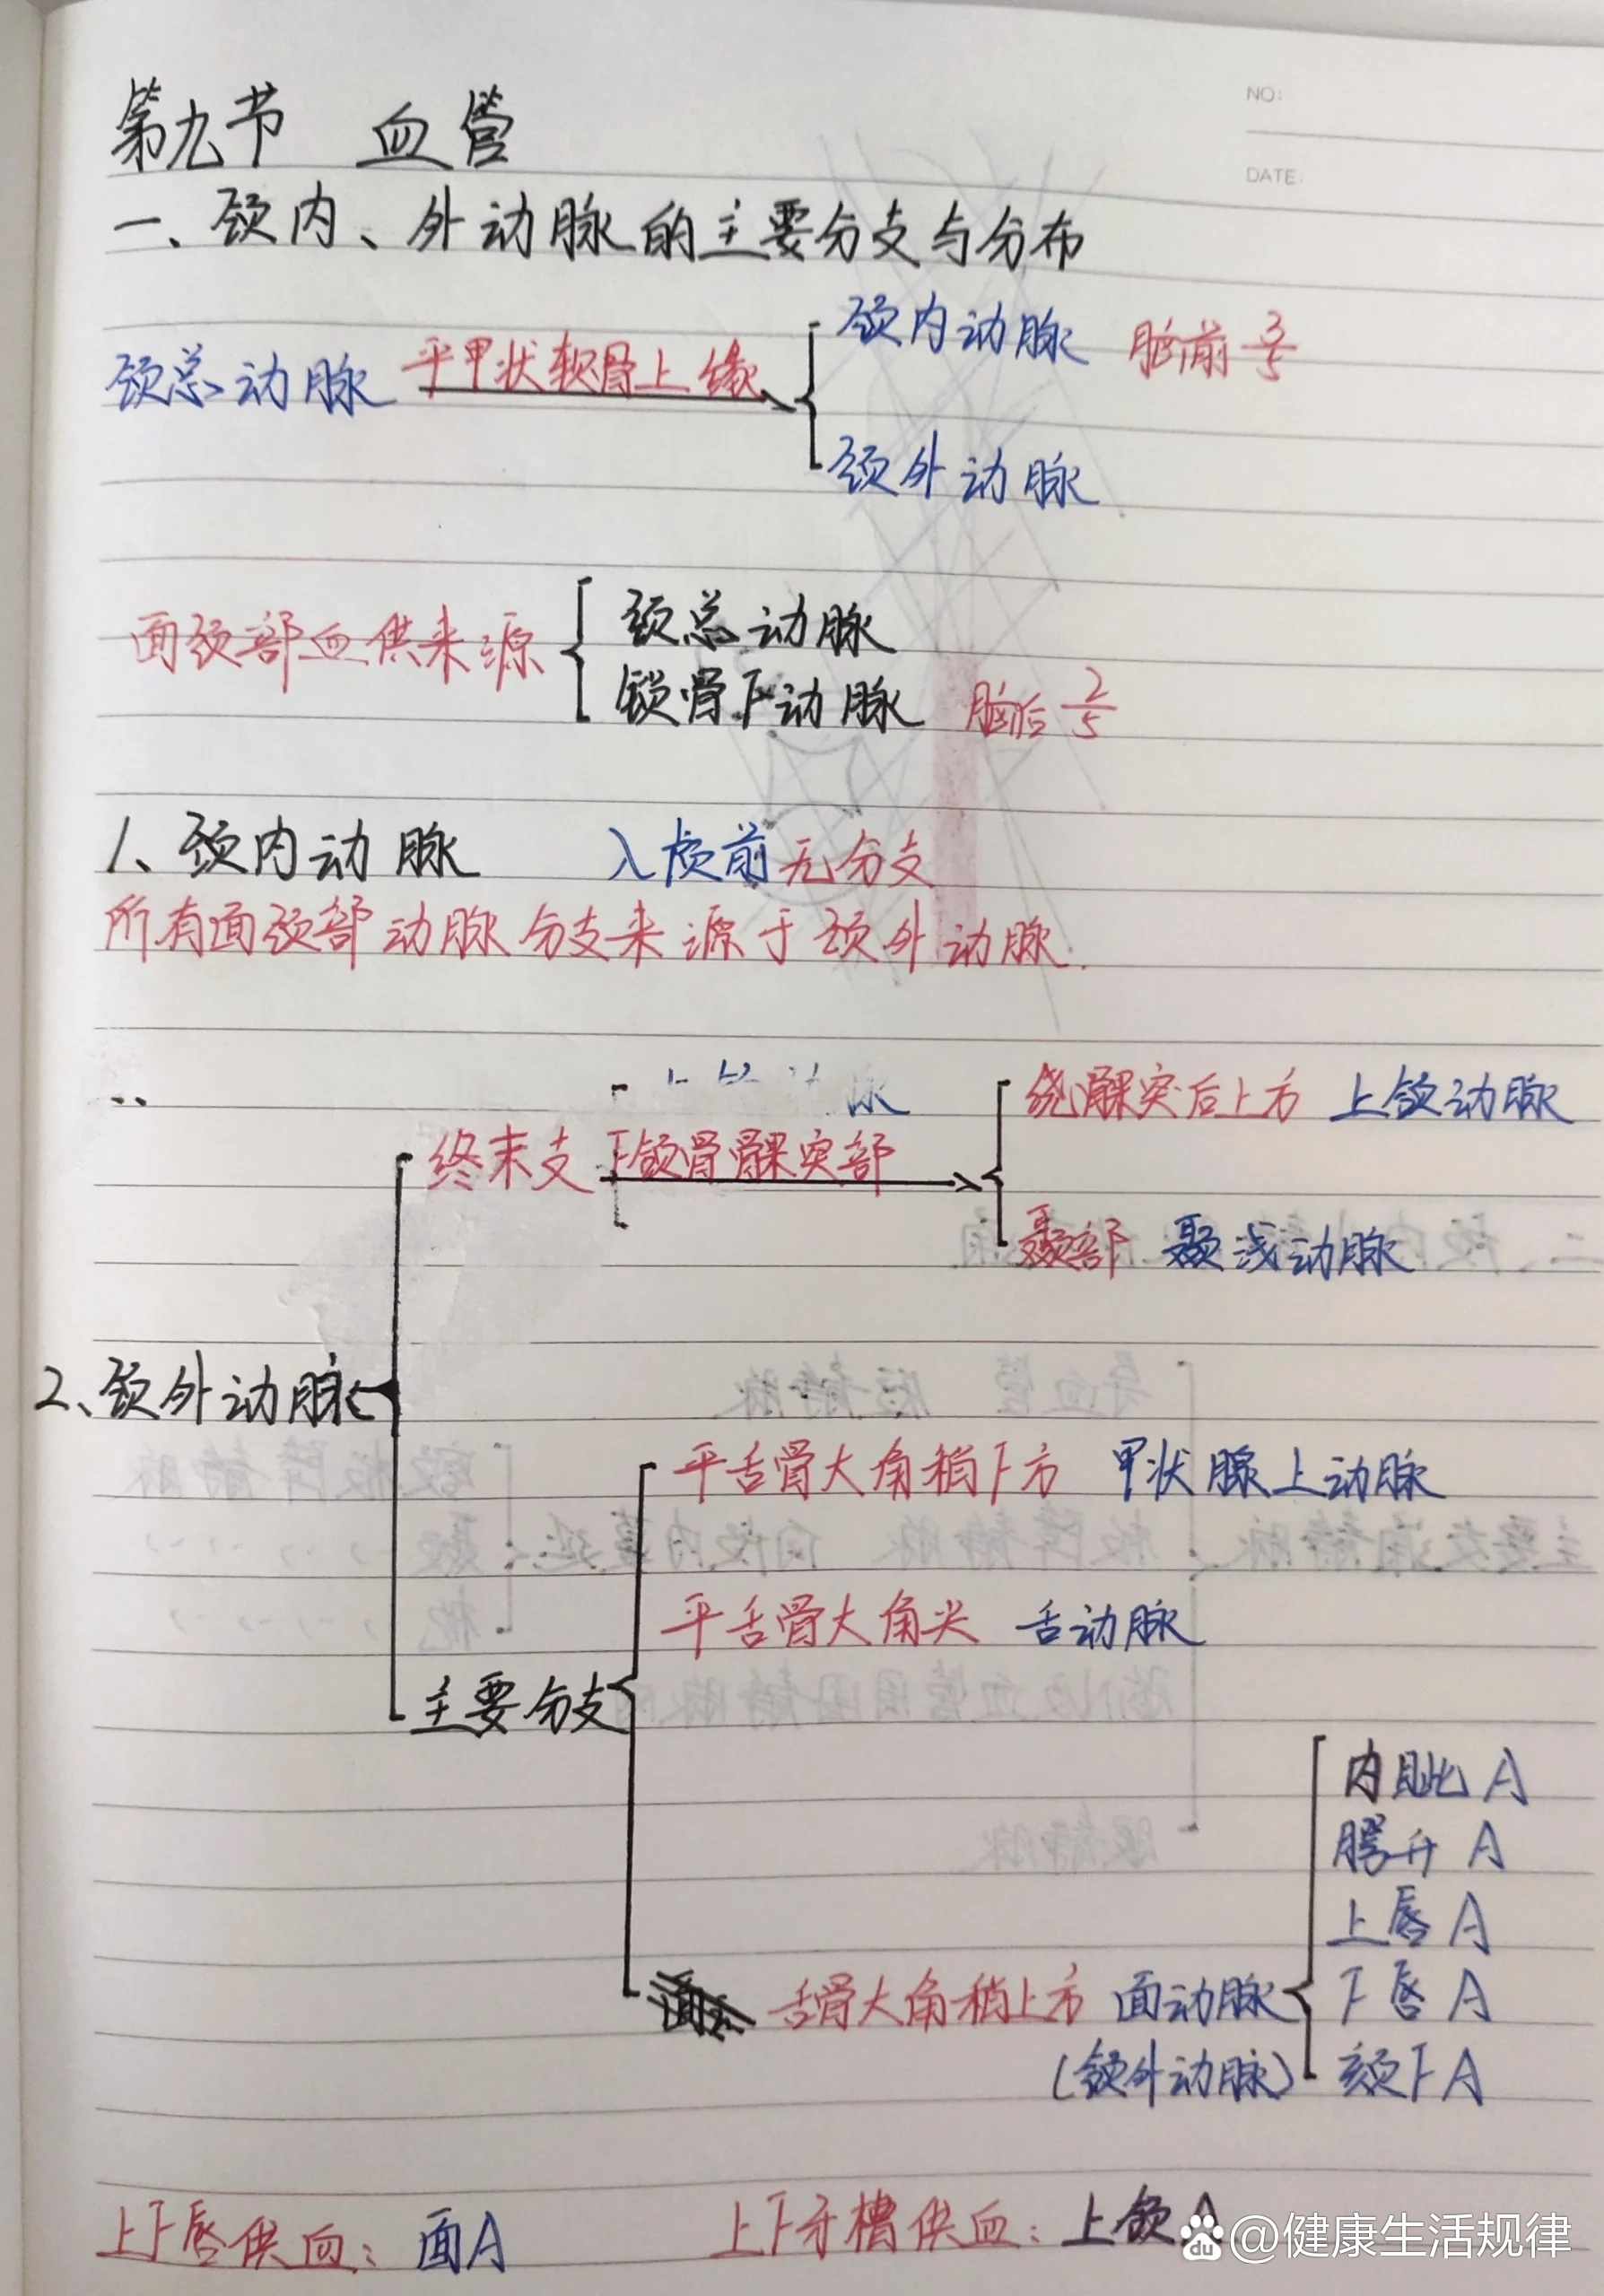 NO:
DATE:
第九节 血管
一、颈内、外动脉的主要分支与分布
颈总动脉 平甲状软骨上缘
颈内动脉 脑前 3/5
颈外动脉
面颈部血供来源
颈总动脉
锁骨下动脉 脑后 2/5
1、颈内动脉 入颅前无分支
所有面颈部动脉分支来源于颈外动脉.
2、颈外动脉
终末支 下颌骨髁突部
绕髁突后上方 上颌动脉
颞部 颞浅动脉
主要分支
平舌骨大角稍下方 甲状腺上动脉
平舌骨大角尖 舌动脉
舌骨大角稍上方 面动脉
(颌外动脉)
内眦A
腭升A
上唇A
下唇A
颏下A
上下唇供血: 面A
上下牙槽供血: 上颌A
du @健康生活规律